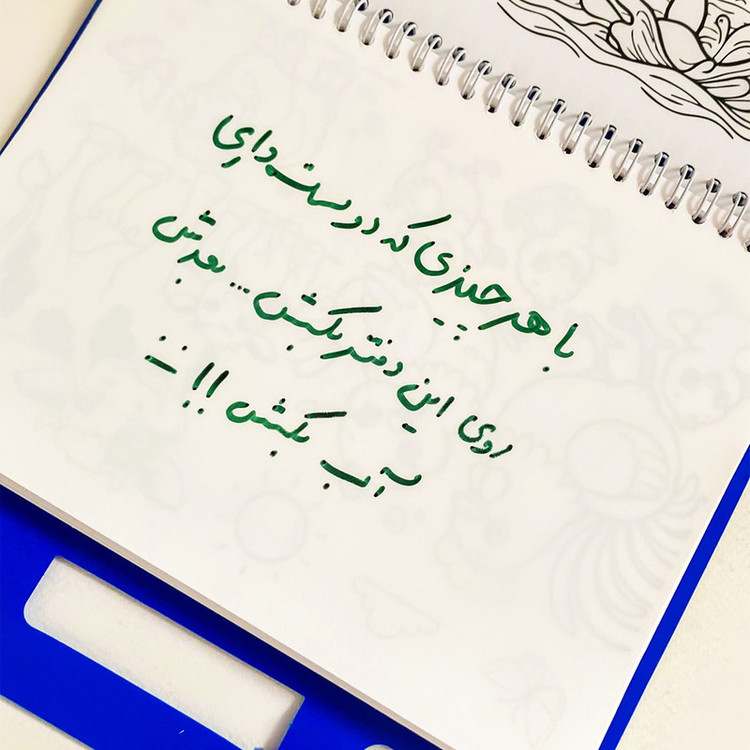 با هر چیزی که دوست داری
روی این دفتر بکش... بعدش
آب بکش!!